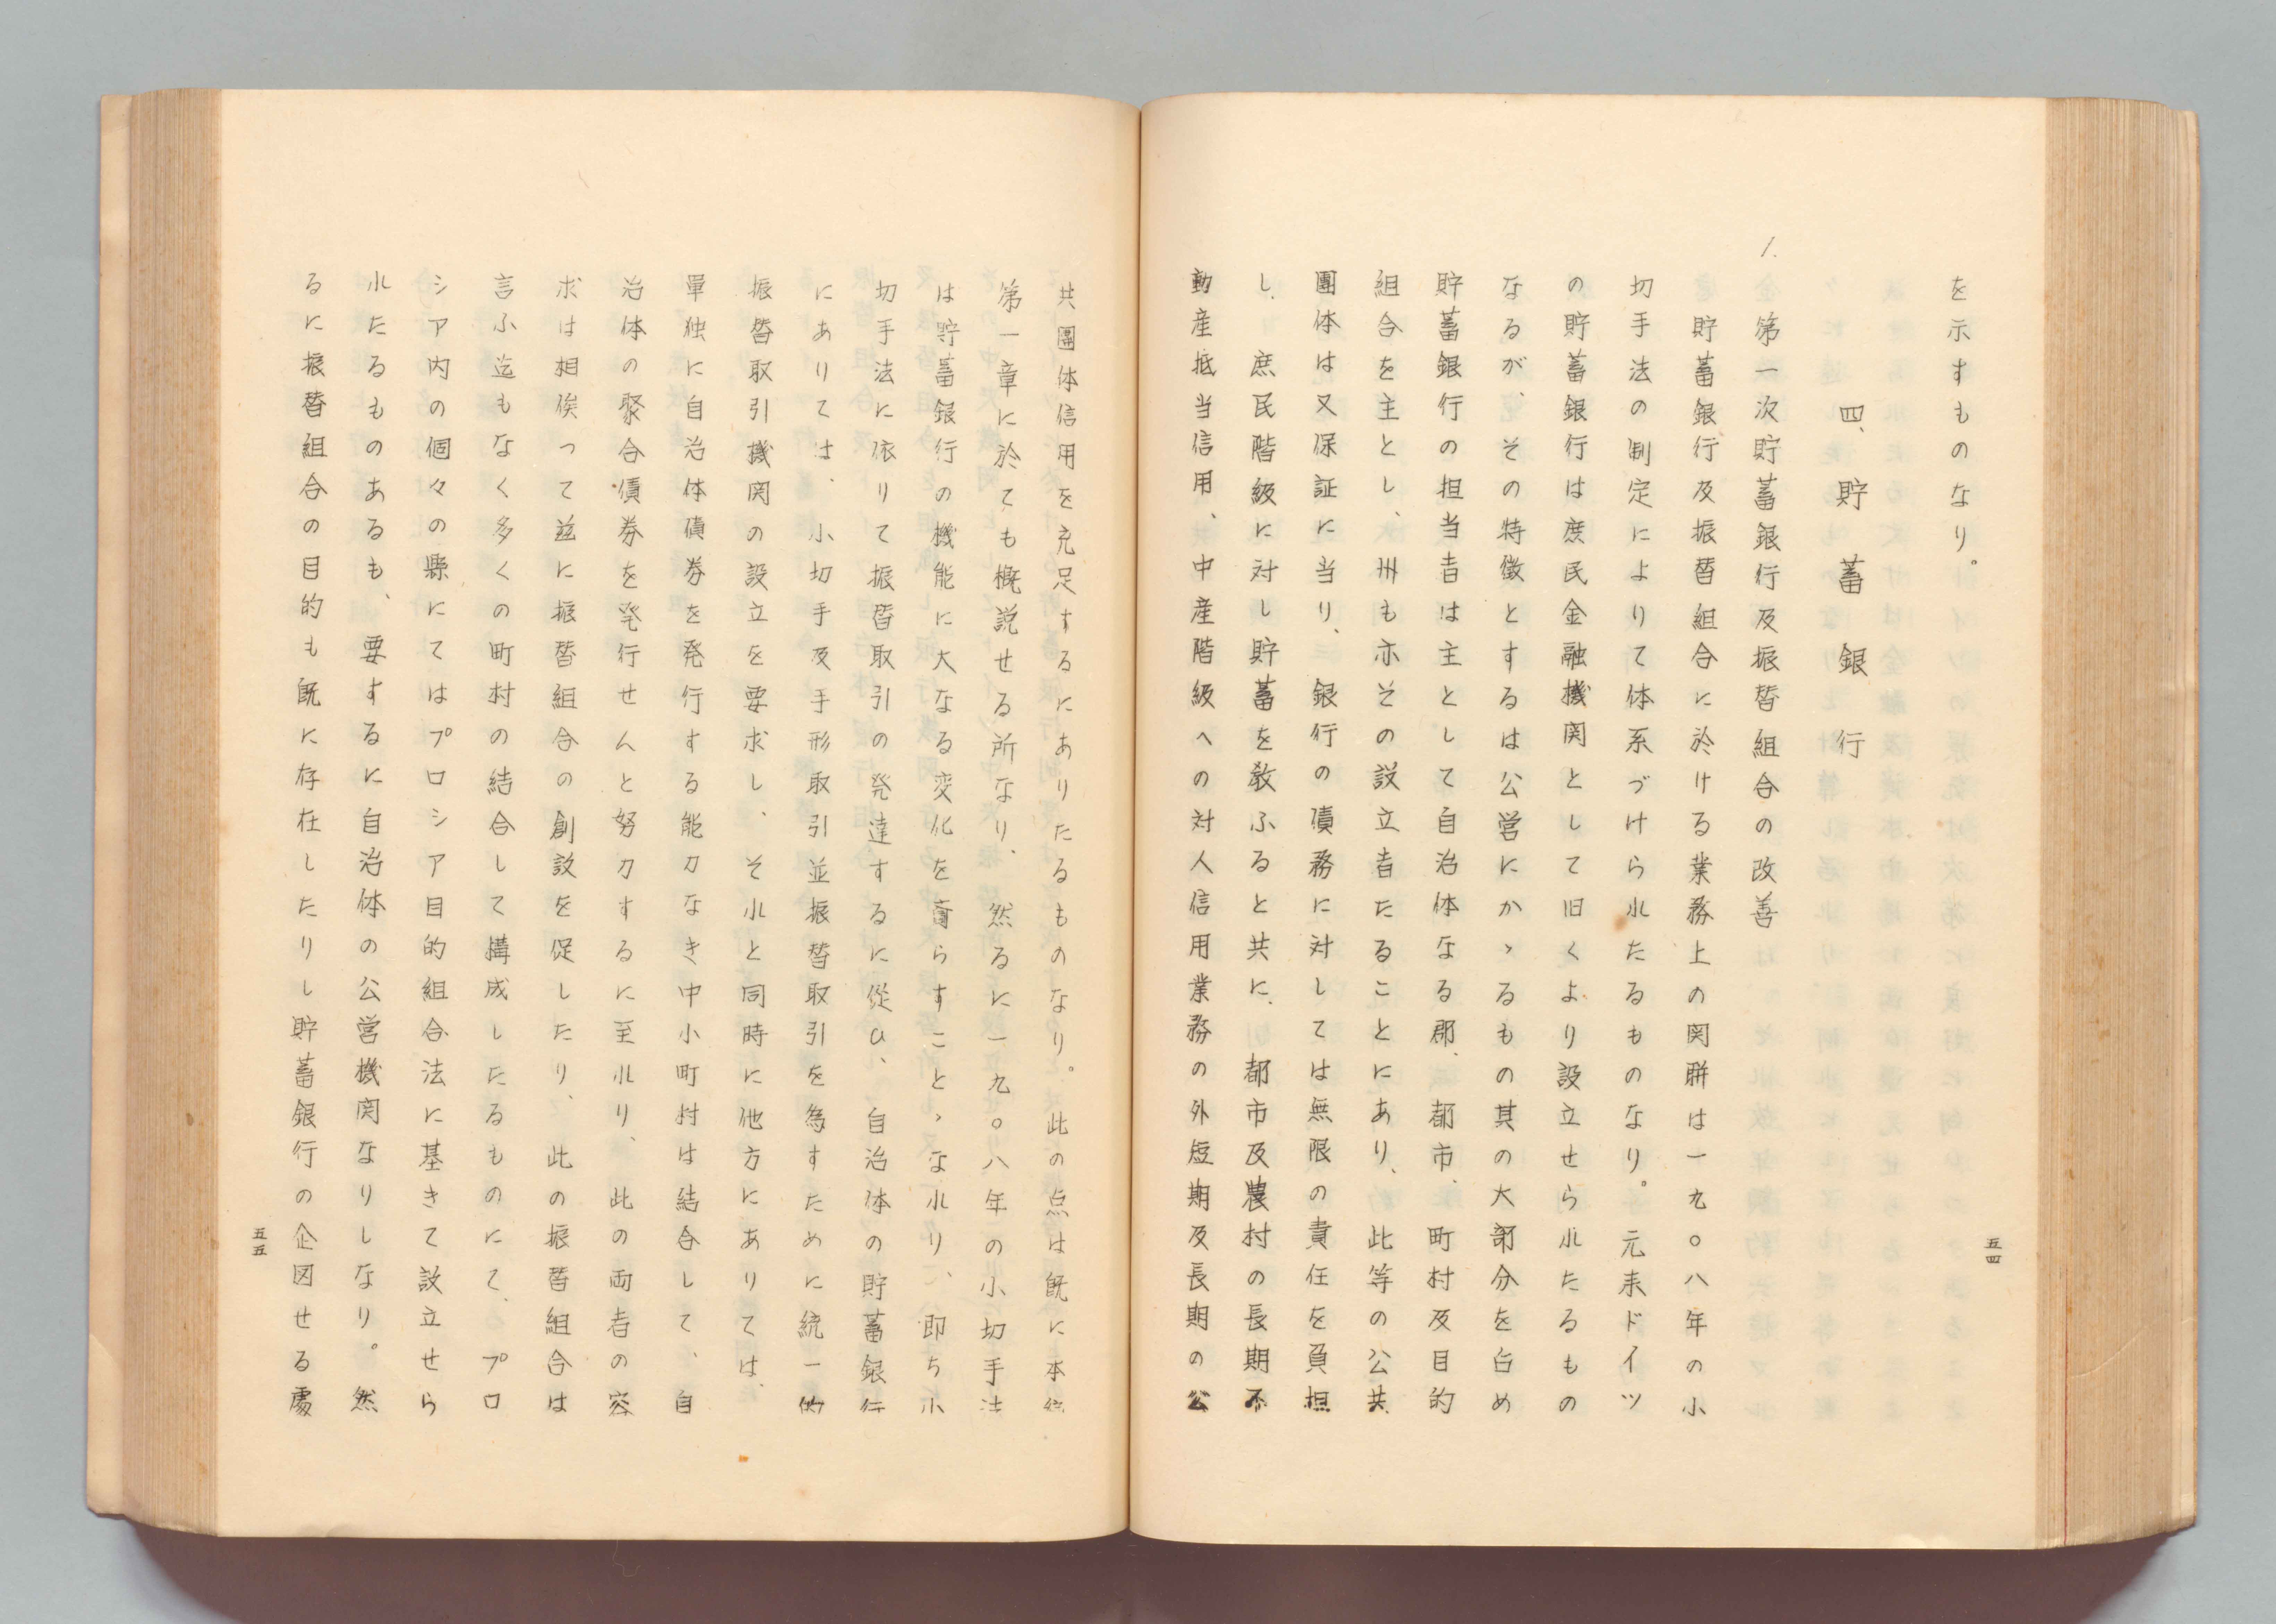 を示すものなり。
四、貯蓄銀行
1.第一次貯蓄銀行及振替組合の改善
貯蓄銀行及振替組合に於ける業務上の関聯は一九〇八年の小
切手法の制定によりて体系づけられたるものなり。元来ドイツ
の貯蓄銀行は庶民金融機関として旧くより設立せられたるもの
なるが、その特徴とするは公営にかゝるもの其の大部分を占め
貯蓄銀行の担当者は主として自治体なる郡、都市、町村及目的
組合を主とし、州も亦その設立者たることにあり、此等の公共
團体は又保証に当り、銀行の債務に対しては無限の責任を負担
し、庶民階級に対し貯蓄を教ふると共に、都市及農村の長期不
動産抵当信用、中産階級への対人信用業務の外短期及長期の公
五四
共團体信用を充足するにありたるものなり。此の点は既に本
第一章に於ても概説せる所なり、然るに一九〇八年の小切手法
は貯蓄銀行の機能に大なる変化を齎らすことゝなれり、即ち小
切手法に依りて振替取引の発達するに從ひ、自治体の貯蓄銀行
にありては、小切手及手形取引並振替取引を為すために統一的
振替取引機関の設立を要求し、それと同時に他方にありては、
単独に自治体債券を発行する能力なき中小町村は結合して、自
治体の聚合債券を発行せんと努力するに至れり、此の両者の容
求は相俟って茲に振替組合の創設を促したり、此の振替組合は
言ふ迄もなく多くの町村の結合して構成したるものにて、プロ
シア内の個々の縣にてはプロシア目的組合法に基きて設立せら
れたるものあるも、要するに自治体の公営機関なりしなり。然
るに振替組合の目的も既に存在したりし貯蓄銀行の企図せる處
五五